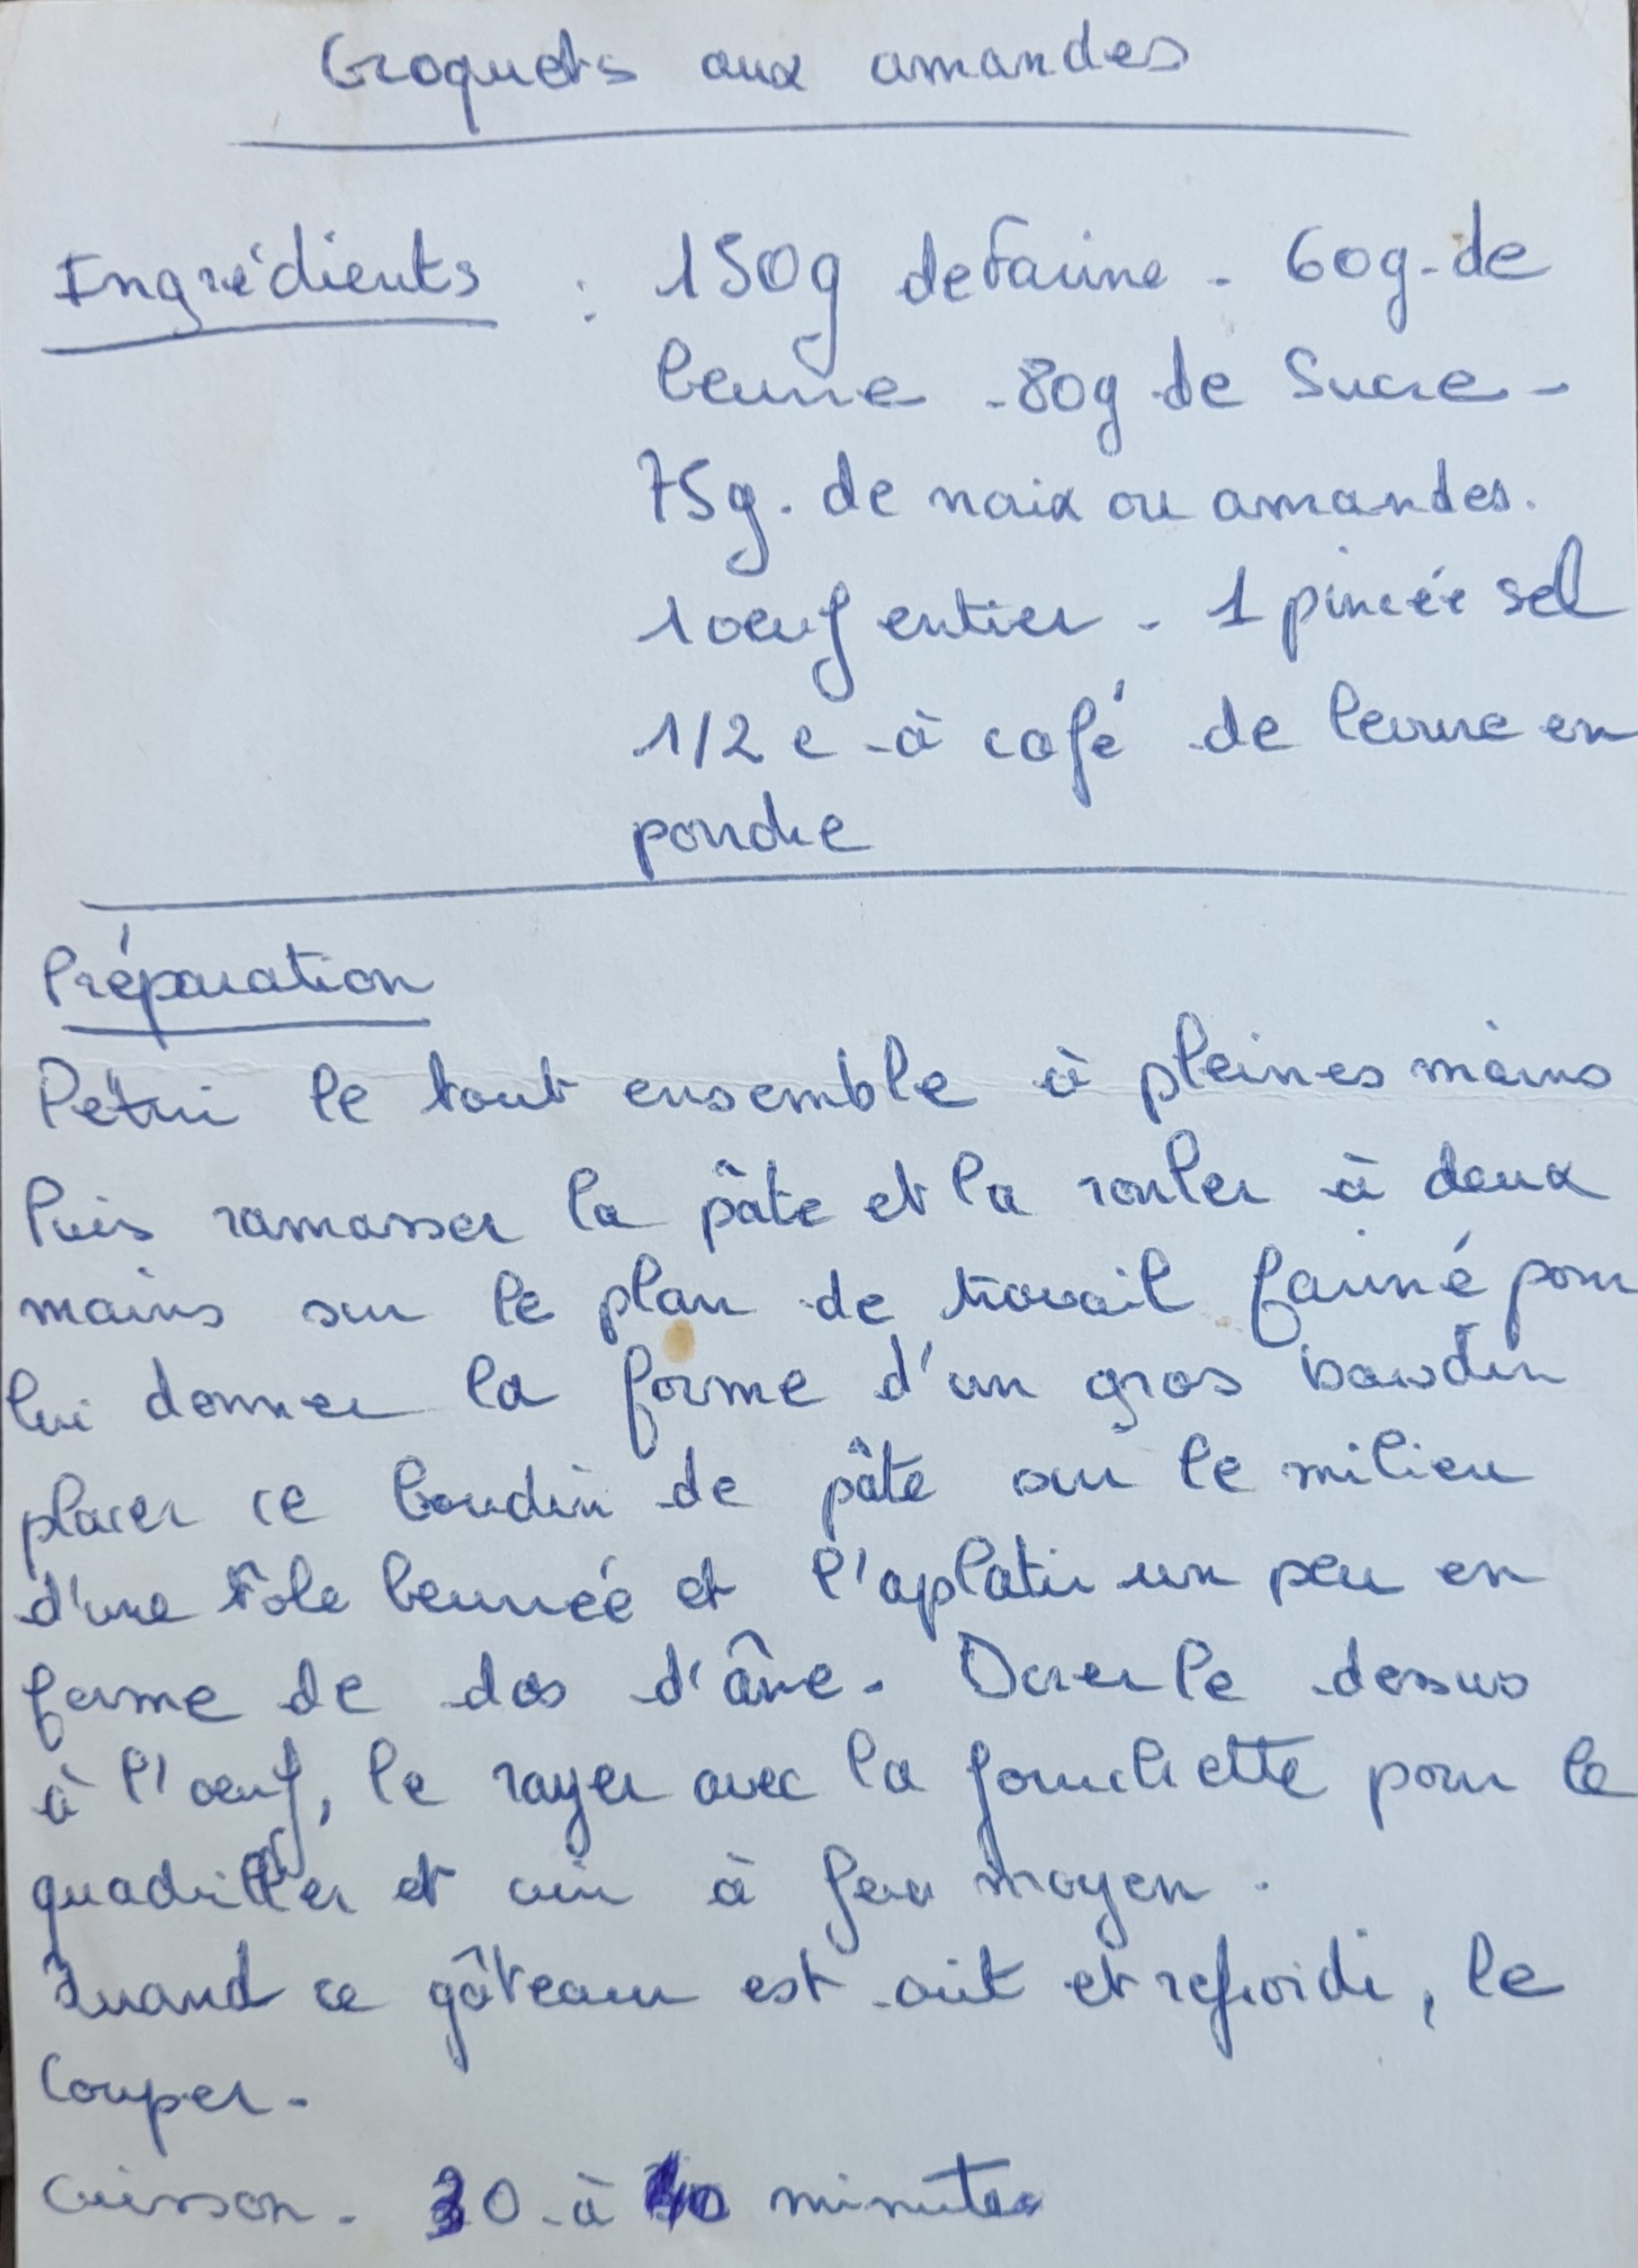 Croquets aux amandes
Ingrédients : 150g de farine - 60g. de
beurre - 80g de Sucre -
75g. de noix ou amandes.
1 oeuf entier - 1 pincée sel
1/2 c à café de levure en
poudre
Préparation
Pétrir le tout ensemble à pleines mains
Puis ramasser la pâte et la rouler à deux
mains sur le plan de travail fariné pour
lui donner la forme d'un gros boudin
placer ce boudin de pâte sur le milieu
d'une tôle beurrée et l'aplatir un peu en
forme de dos d'âne. Dorer le dessus
à l'oeuf, le rayer avec la fourchette pour le
quadriller et cuir à feu moyen.
Quand ce gâteau est cuit et refroidi, le
Couper.
Cuisson - 30 à 40 minutes